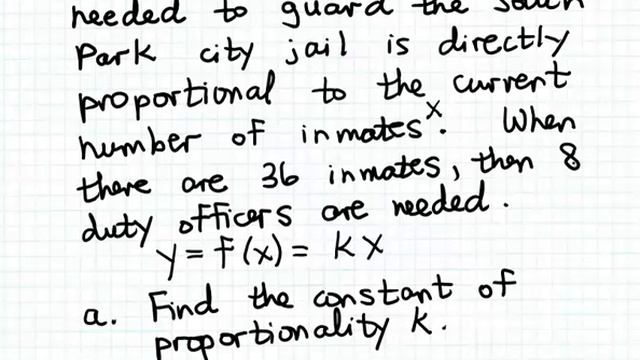 needed to guard the South
Park city jail is directly
proportional to the current
number of inmates x. When
there are 36 inmates, then 8
duty officers are needed.
y = f(x) = kx
a. Find the constant of
proportionality k.